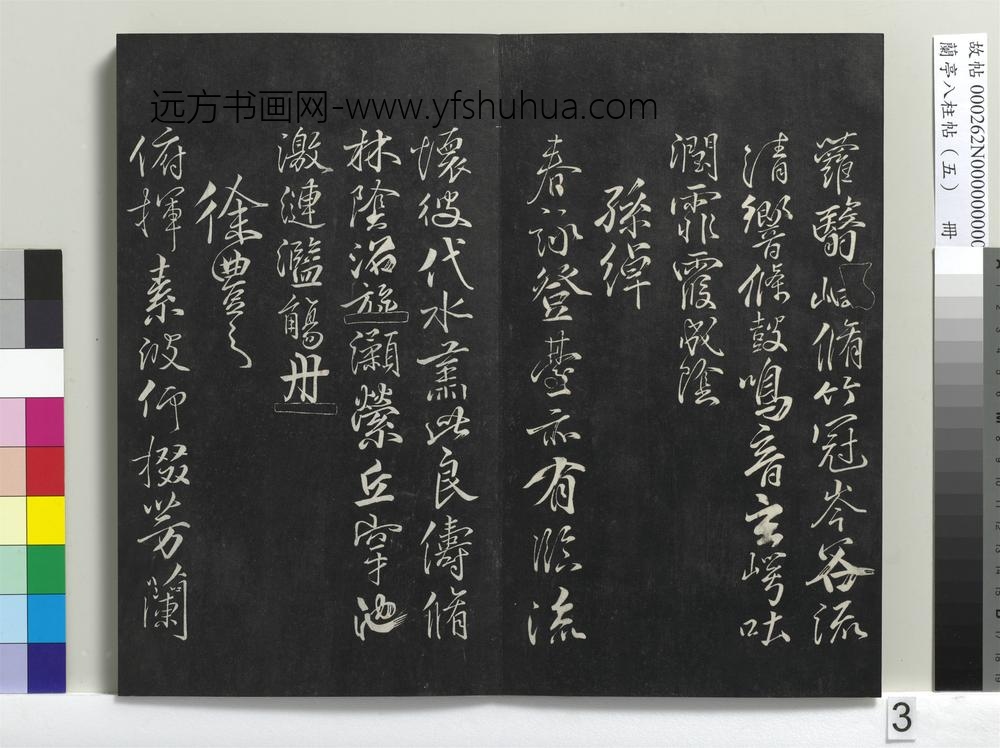 远方书画网-www.yfshuhua.com
蘿翳岫脩竹冠岑谷流
清響條鼓鳴音玄崿吐
潤霏霞成陰
孫綽
春詠登臺亦有臨流
懷彼代水肅此良儔脩
林陰沼旋瀨縈丘穿池
激漣濫觴舟
徐豐之
俯揮素波仰掇芳蘭
故帖 000262N000000000
蘭亭八柱帖（五） 冊
3